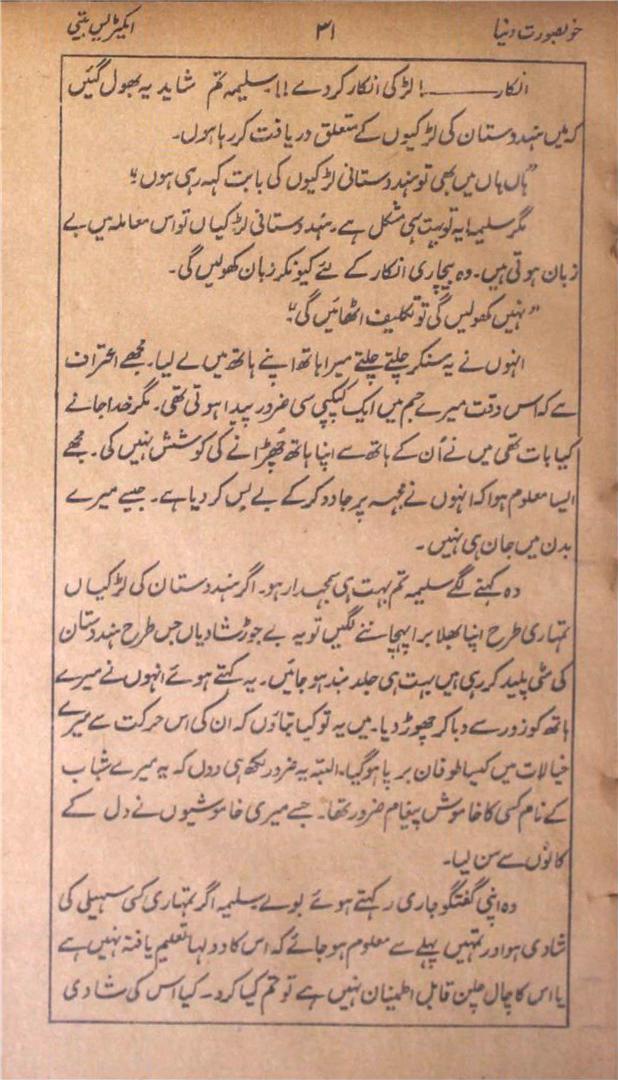 خوبصورت دنیا ۳۱ ایکٹریس بیتی
انکار ——! لڑکی انکار کر دے!! سلیمہ تم شاید یہ بھول گئیں
کہ میں ہندوستان کی لڑکیوں کے متعلق دریافت کر رہا ہوں۔
”ہاں ہاں میں بھی تو ہندوستانی لڑکیوں کی بابت کہہ رہی ہوں“
مگر سلیمہ! یہ تو بہت ہی مشکل ہے۔ ہندوستانی لڑکیاں تو اس معاملہ میں بے
زبان ہوتی ہیں۔ وہ بیچاری انکار کے لئے کیونکر زبان کھولیں گی۔
”نہیں کھولیں گی تو تکلیف اٹھائیں گی“
انہوں نے یہ سنکر چلتے چلتے میرا ہاتھ اپنے ہاتھ میں لے لیا۔ مجھے اعتراف
ہے کہ اس وقت میرے جسم میں ایک کپکپی سی ضرور پیدا ہوتی تھی۔ مگر خدا جانے
کیا بات تھی میں نے اُن کے ہاتھ سے اپنا ہاتھ چھڑانے کی کوشش نہیں کی۔ مجھے
ایسا معلوم ہوا کہ انہوں نے مجھ پر جادو کر کے بے بس کر دیا ہے۔ جیسے میرے
بدن میں جان ہی نہیں۔
وہ کہنے لگے سلیمہ تم بہت ہی سمجھدار ہو۔ اگر ہندوستان کی لڑکیاں
تمہاری طرح اپنا بھلا برا پہچاننے لگیں تو یہ بے جوڑ شادیاں جس طرح ہندوستان
کی مٹی پلید کر رہی ہیں بہت ہی جلد بند ہو جائیں۔ یہ کہتے ہوئے انہوں نے میرے
ہاتھ کو زور سے دبا کر چھوڑ دیا۔ میں یہ تو کیا بتاؤں کہ ان کی اس حرکت سے میرے
خیالات میں کیسا طوفان برپا ہو گیا۔ البتہ یہ ضرور لکھ ہی دوں کہ یہ میرے شباب
کے نام کسی کا خاموش پیغام ضرور تھا۔ جسے میری خاموشیوں نے دل کے
کانوں سے سن لیا۔
وہ اپنی گفتگو جاری رکھتے ہوئے بولے سلیمہ اگر تمہاری کسی سہیلی کی
شادی ہو اور تمہیں پہلے سے معلوم ہو جائے کہ اس کا دولہا تعلیم یافتہ نہیں ہے
یا اس کا چال چلن قابل اطمینان نہیں ہے تو تم کیا کرو۔ کیا اس کی شادی